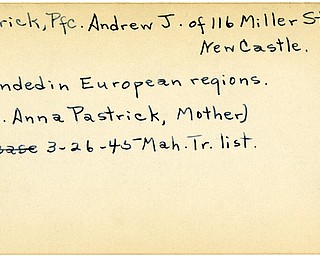 rick, Pfc. Andrew J. of 116 Miller S
New Castle.
nded in European regions.
. Anna Pastrick, Mother)
ease 3-26-45 Mah. Tr. list.